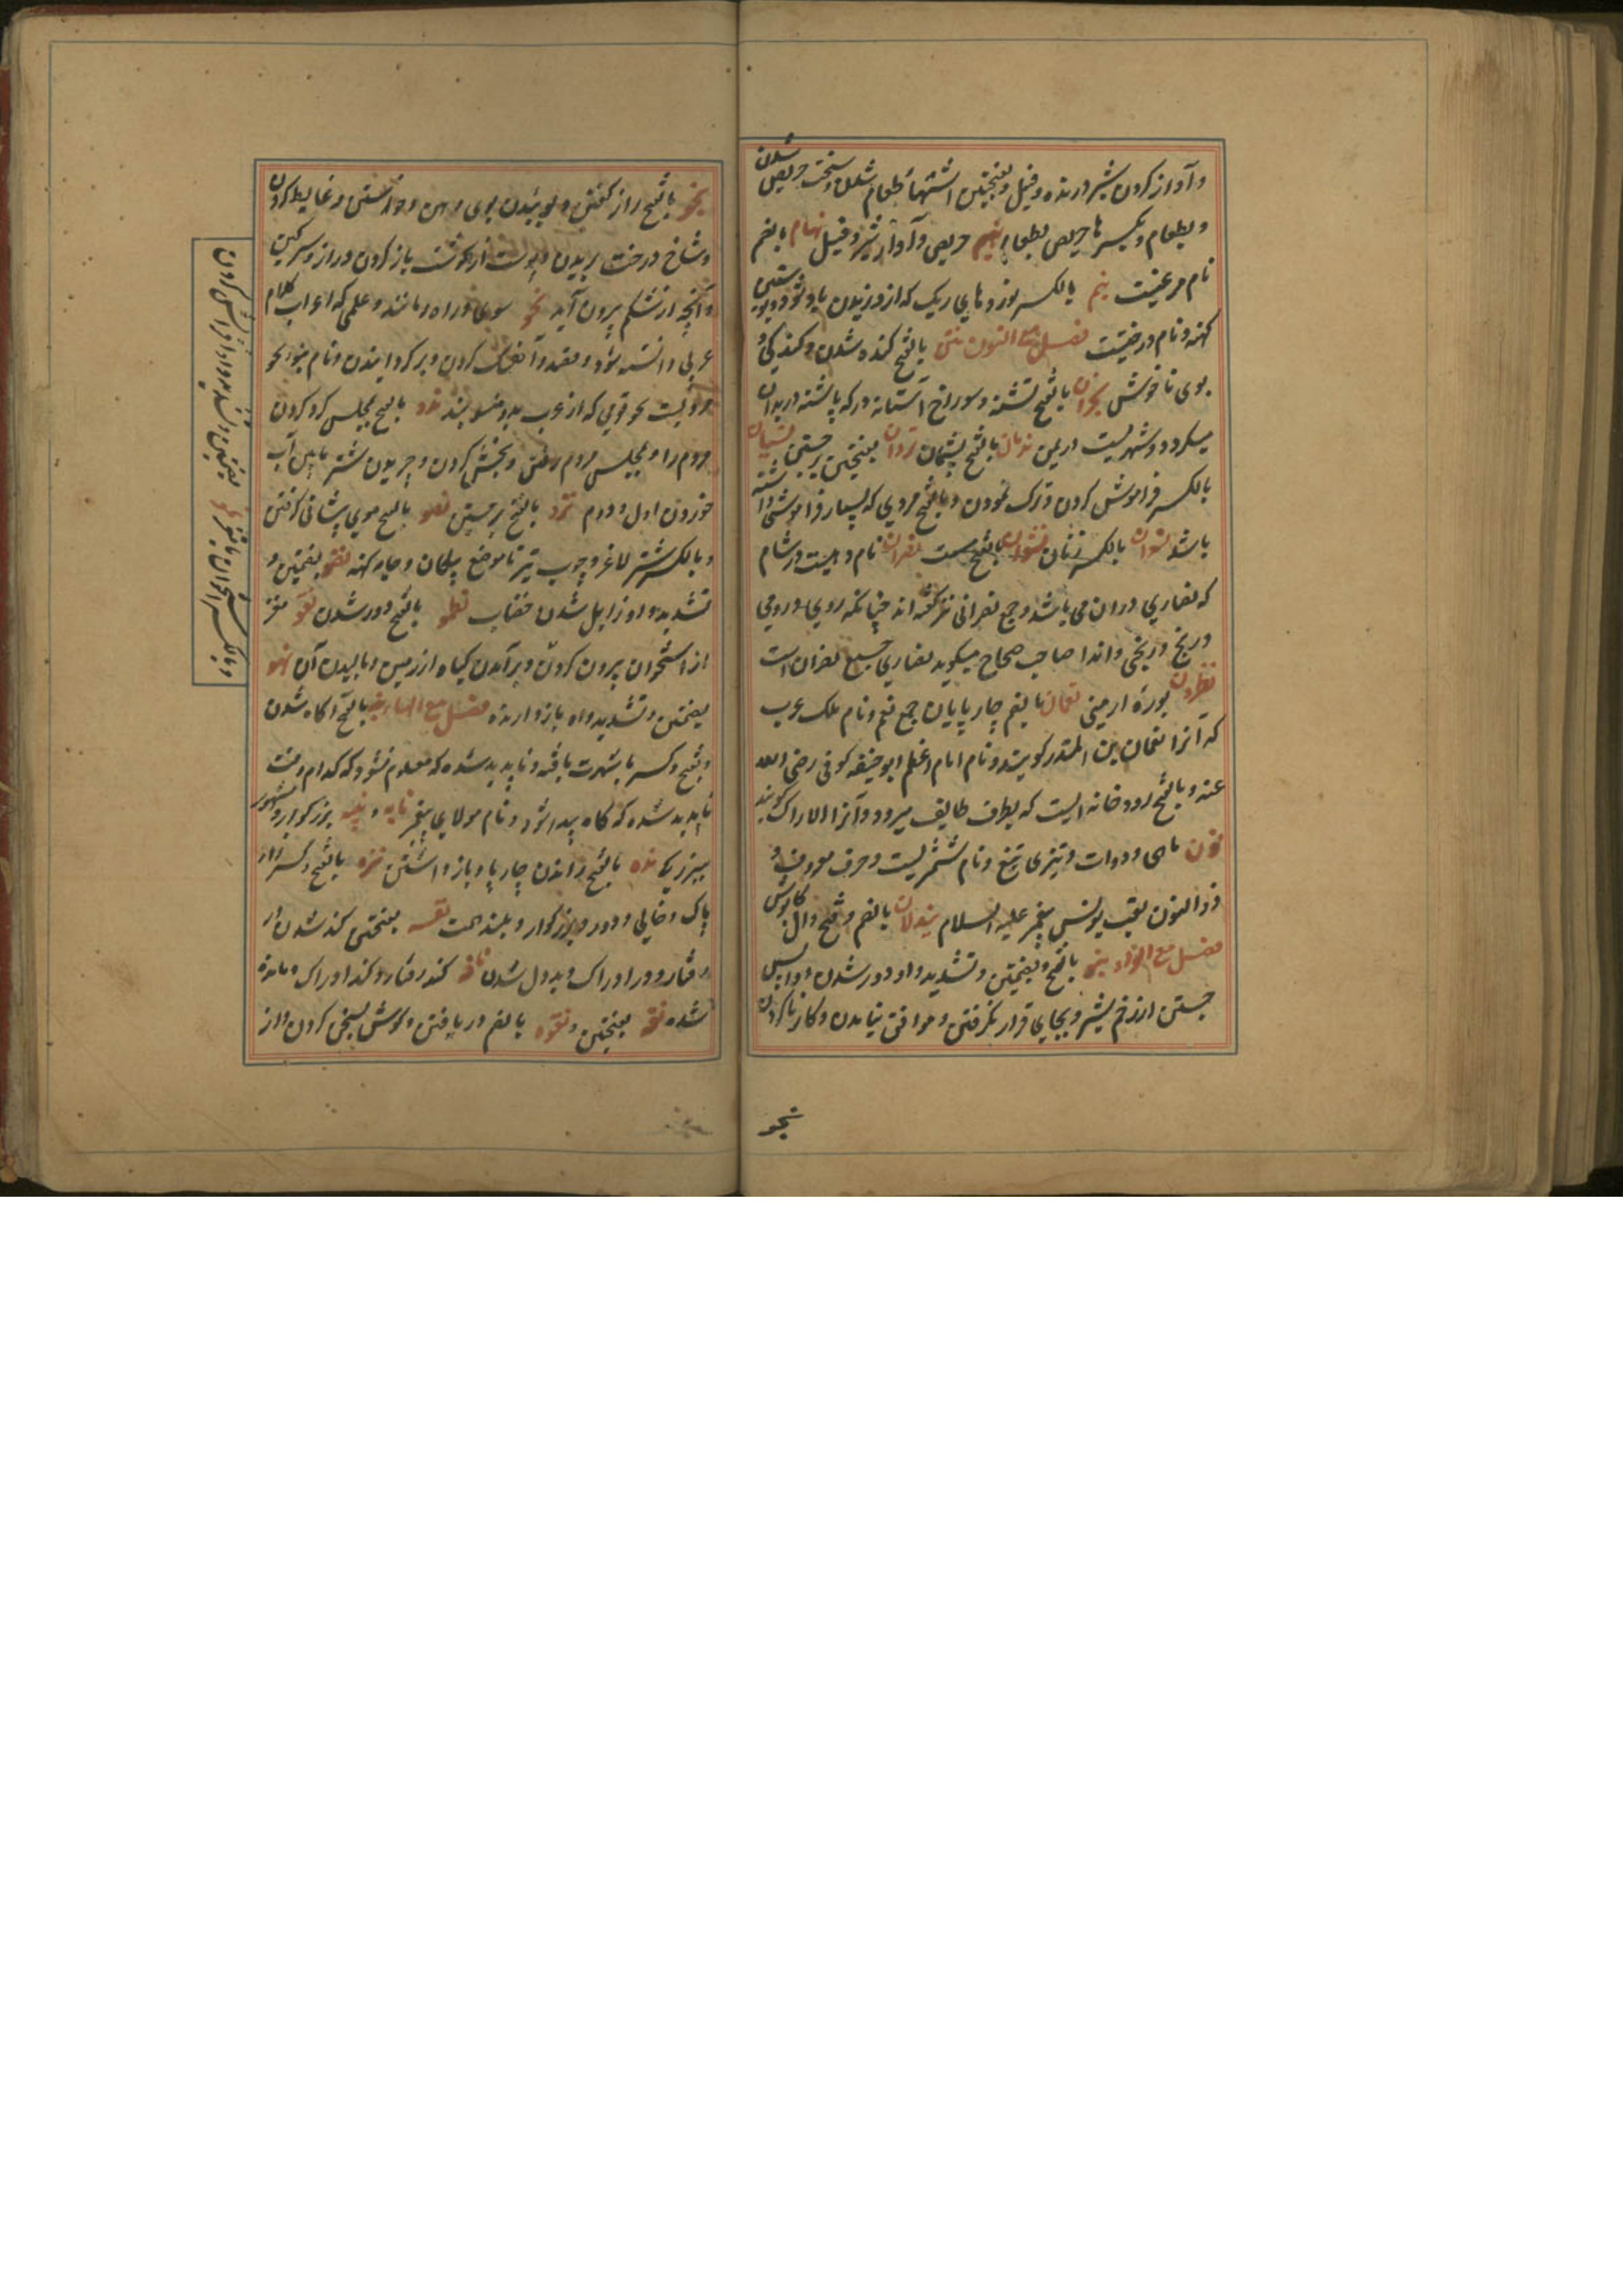 و آواز کردن شیر درنده و فیل و بفتحتین اشتهاء طعام شدن و سخت حریص شدن
و بطعام و بکسر ها حریص بطعام نهیم حریص و آواز شیر و فیل نهام بالضم
نام مرغیست نیم بالکسر پوز و های ریک که از وزیدن باد شود و پوستین
کهنه و نام درختیست فصل مع النون نتن بالفتح کنده شدن و کندیکی و
بوی ناخوش نجران بالفتح تشنه و سوراخ آستانه در که پاشنه در بدان
میکردد و شهریست در یمن ندمان بالفتح پشیمان نزوان بفتحتین بر جستن نسیان
بالکسر فراموش کردن و ترک نمودن و بالفتح مردی که بسیار فراموشی داشته
باشد نسوان بالکسر زنان نشوان بالفتح مست نصران نام دهیست در شام
که نصاری در ان می باشد و جمع نصرانی نیز گفته اند چنانکه روی و رومی
و زنج و زنجی و اندا صاحب صحاح میکوید نصاری جمع نصران است
نطرون بوره ارمنی نعمان بالضم چارپایان جمع نعم و نام ملک عرب
که آنرا نعمان بن المنذر کویند و نام امام اعظم ابو حنیفه کوفی رضی الله
عنه و بالفتح رودخانه ایست که بطرف طایف میرود و آنرا الاراک کویند
نون ماهی و دوات و تیزی تیغ و نام شمشیریست و حرف معروف و
ذو النون لقب یونس پیغمبر علیه السلام نیدلان بالضم و فتح دال کابوس
فصل مع الواو نبو بالفتح و بضمتین و تشدید واو دور شدن و واپس
جستن از زخم شمشیر و بجای قرار نکرفتن و موافق نیامدن و کار ناکردن
نجو
نجو بالفتح راز کفتن و بوییدن بوی دهن و خواستن و غایط کردن
و شاخ درخت بریدن و پوست از کوشت باز کردن و راز و سرکین
و آنچه از شکم بیرون آید نحو سوی و راه و مانند و علمی که اعراب کلام
عربی دانسته شود و قصد و آهنک کردن و برکردانیدن و نام بنو نحو
و قومی که از عرب بدو منسوبند ندو بالفتح بمجلس کرد کردن
مردم را و بمجلس مردم رفتن و بخشش کردن و چریدن شتر مابین آب
خوردن اول و دوم نزو بالفتح بر جستن نصو بالفتح موی پیشانی کرفتن
و بالکسر شتر لاغر و چوب تیر تا موضع پیکان و جامه کهنه نضو بضمتین و
تشدید واو زایل شدن خضاب نطو بالفتح دور شدن نقو مغز
از استخوان بیرون کردن و برآمدن کیاه از زمین و بالیدن آن نهو
بضمتین و تشدید واو باز دارنده فصل مع الهاء نبه بالفتح آکاه شدن
و بفتح و کسر با شهرت یافته و ناپدید شده که معلوم نشود که کدام وقت
ناپدید شده که کاه پیدا شود و نام مولای پیغمبر نابه و نبیه بزرکوار و مشهور
ببزرکی نده بالفتح راندن چارپا و باز داشتن نزه بالفتح و کسر زا
پاک و خالی و دور و بزرکوار و بلند همت نفه بفتحتین کند شدن از
رفتار و ور ادراک و بددل شدن نافه کند رفتار و کند ادراک و مانده
شده نقه بفتحتین و نقوه بالضم دریافتن و کوش بسخن کردن و از